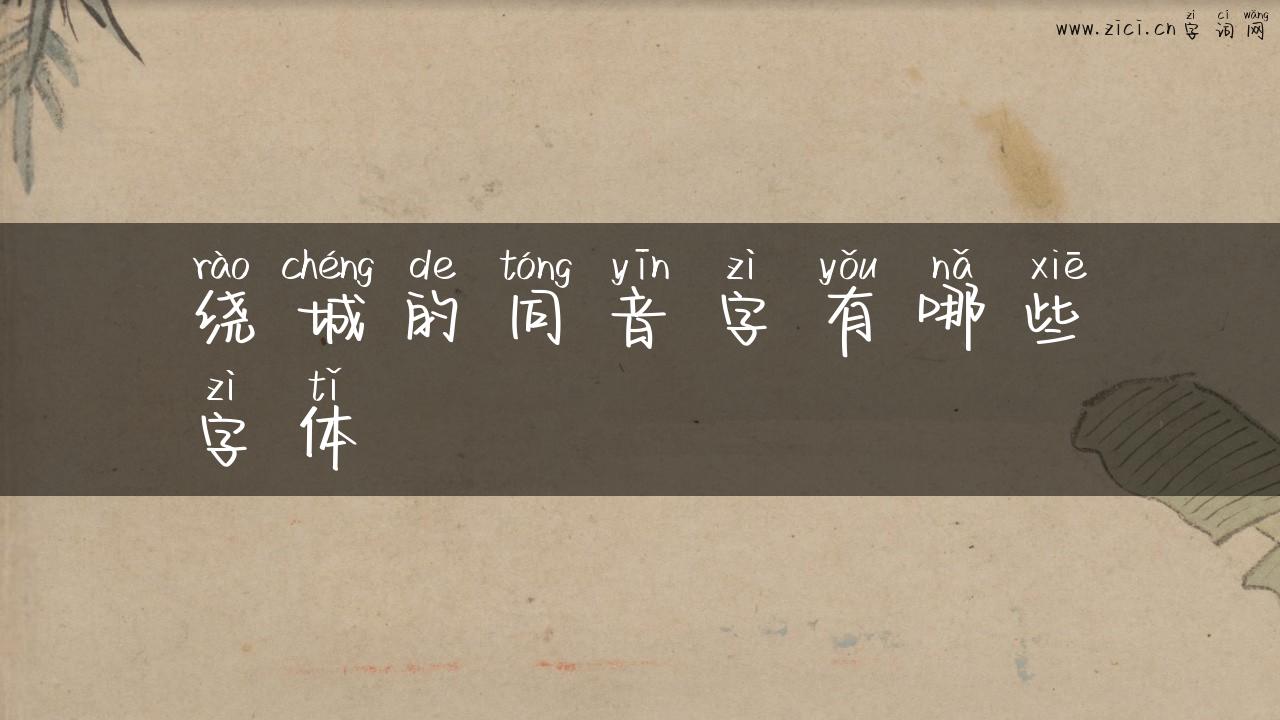 zì cí wǎng
www.zici.cn 字词网
rào chéng de tóng yīn zì yǒu nǎ xiē
绕城的同音字有哪些
zì tǐ
字体